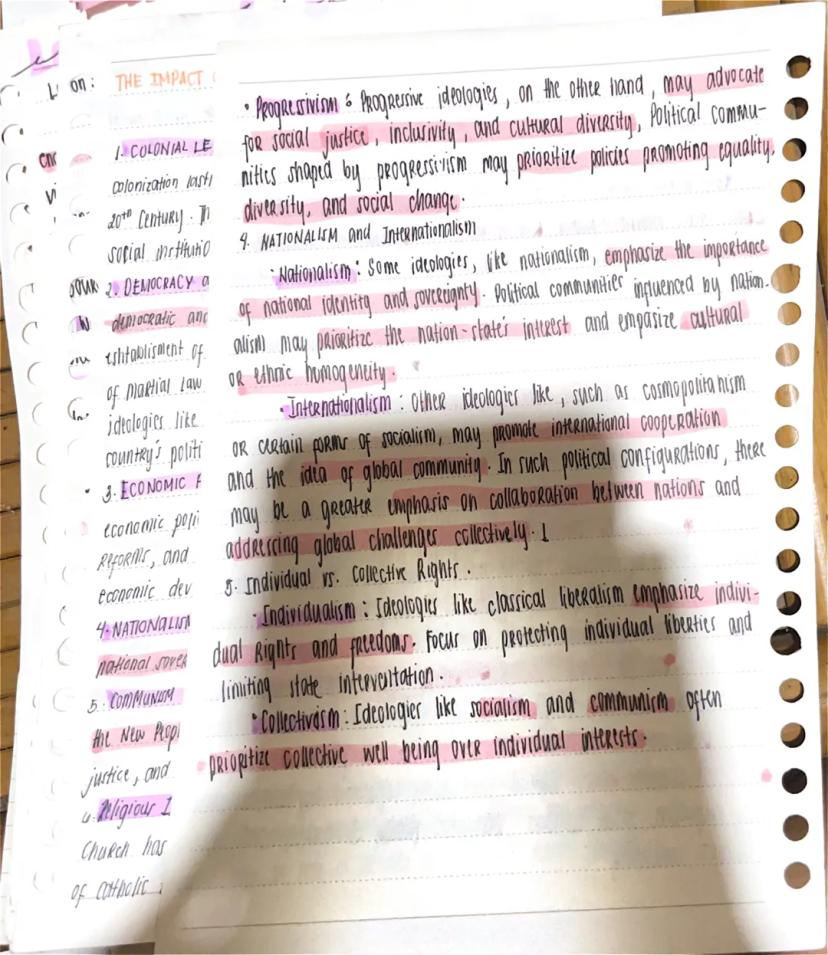 • Progressivism : Progressive ideologies, on the other hand, may advocate
for social justice, inclusivity, and cultural diversity, Political commu-
nities shaped by progressivism may prioritize policies promoting equality,
diversity, and social change.
4. NATIONALISM and Internationalism
• Nationalism : Some ideologies, like nationalism, emphasize the importance
of national identity and sovereignty. Political communities influenced by nation-
alism may prioritize the nation-state's interest and empasize cultural
or ethnic homogeneity.
• Internationalism : Other ideologies like, such as cosmopolitanism
or certain forms of socialism, may promote international cooperation
and the idea of global community. In such political configurations, there
may be a greater emphasis on collaboration between nations and
addressing global challenges collectively.
5. Individual vs. Collective Rights.
• Individualism : Ideologies like classical liberalism emphasize indivi-
dual Rights and freedoms. Focus on protecting individual liberties and
limiting state interventation.
• Collectivism : Ideologies like socialism and communism often
prioritize collective well being over individual interests.
on: THE IMPACT
1. COLONIAL LE
colonization lasti
20th Century. Th
social institutio
2. DEMOCRACY a
democratic and
eshtablisment of
of Martial Law
ideologies like
country's politi
3. ECONOMIC F
economic poli
Reforms, and
economic dev
4. NATIONALISM
national sover
5. COMMUNISM
the New Peopl
justice, and
6. Religious I
Church has
of catholic